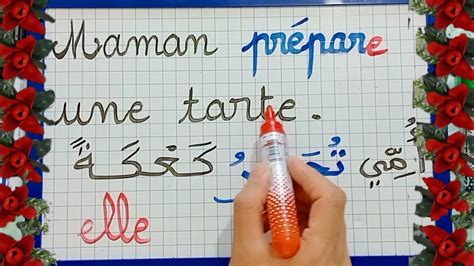 Maman prépare
une tarte.
أُمِّي كَعْكَةً
elle